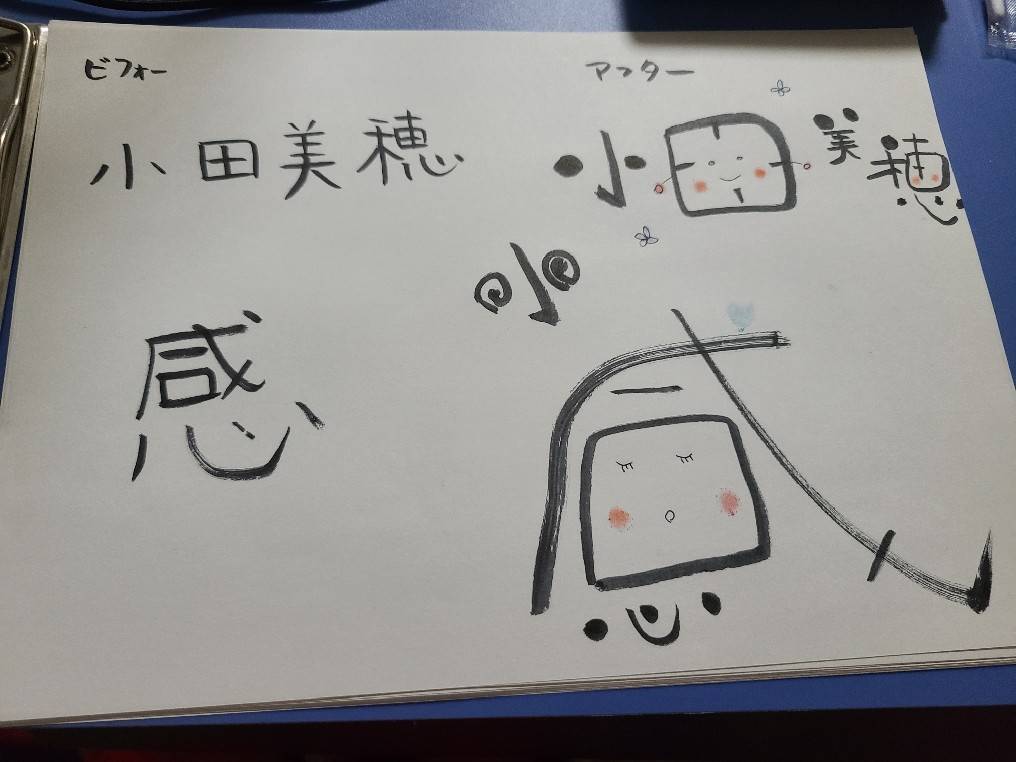 ビフォー
アフター
小田美穂
小田美穂
小
感
感